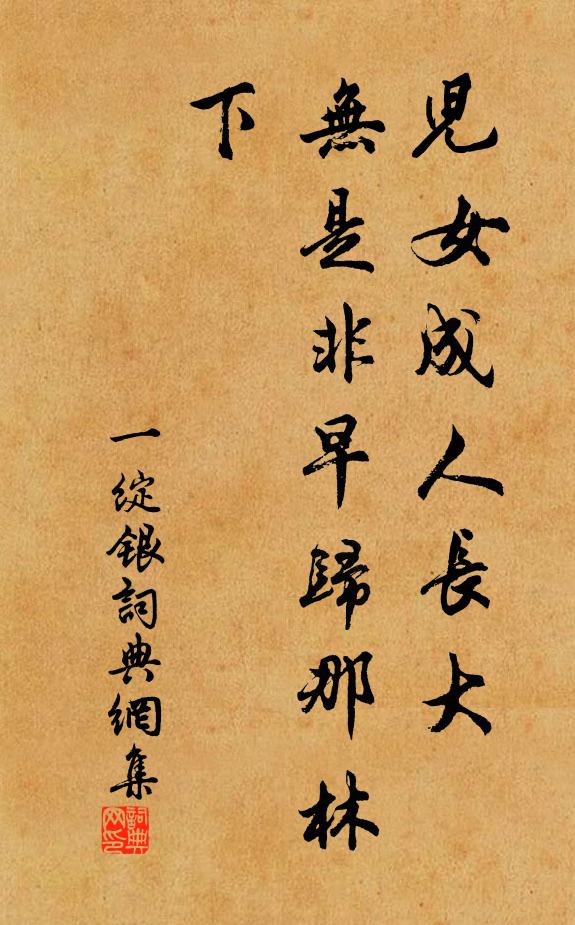 兒女成人長大
無是非早歸那林
下
一綻銀詞典網集
詞典
网印